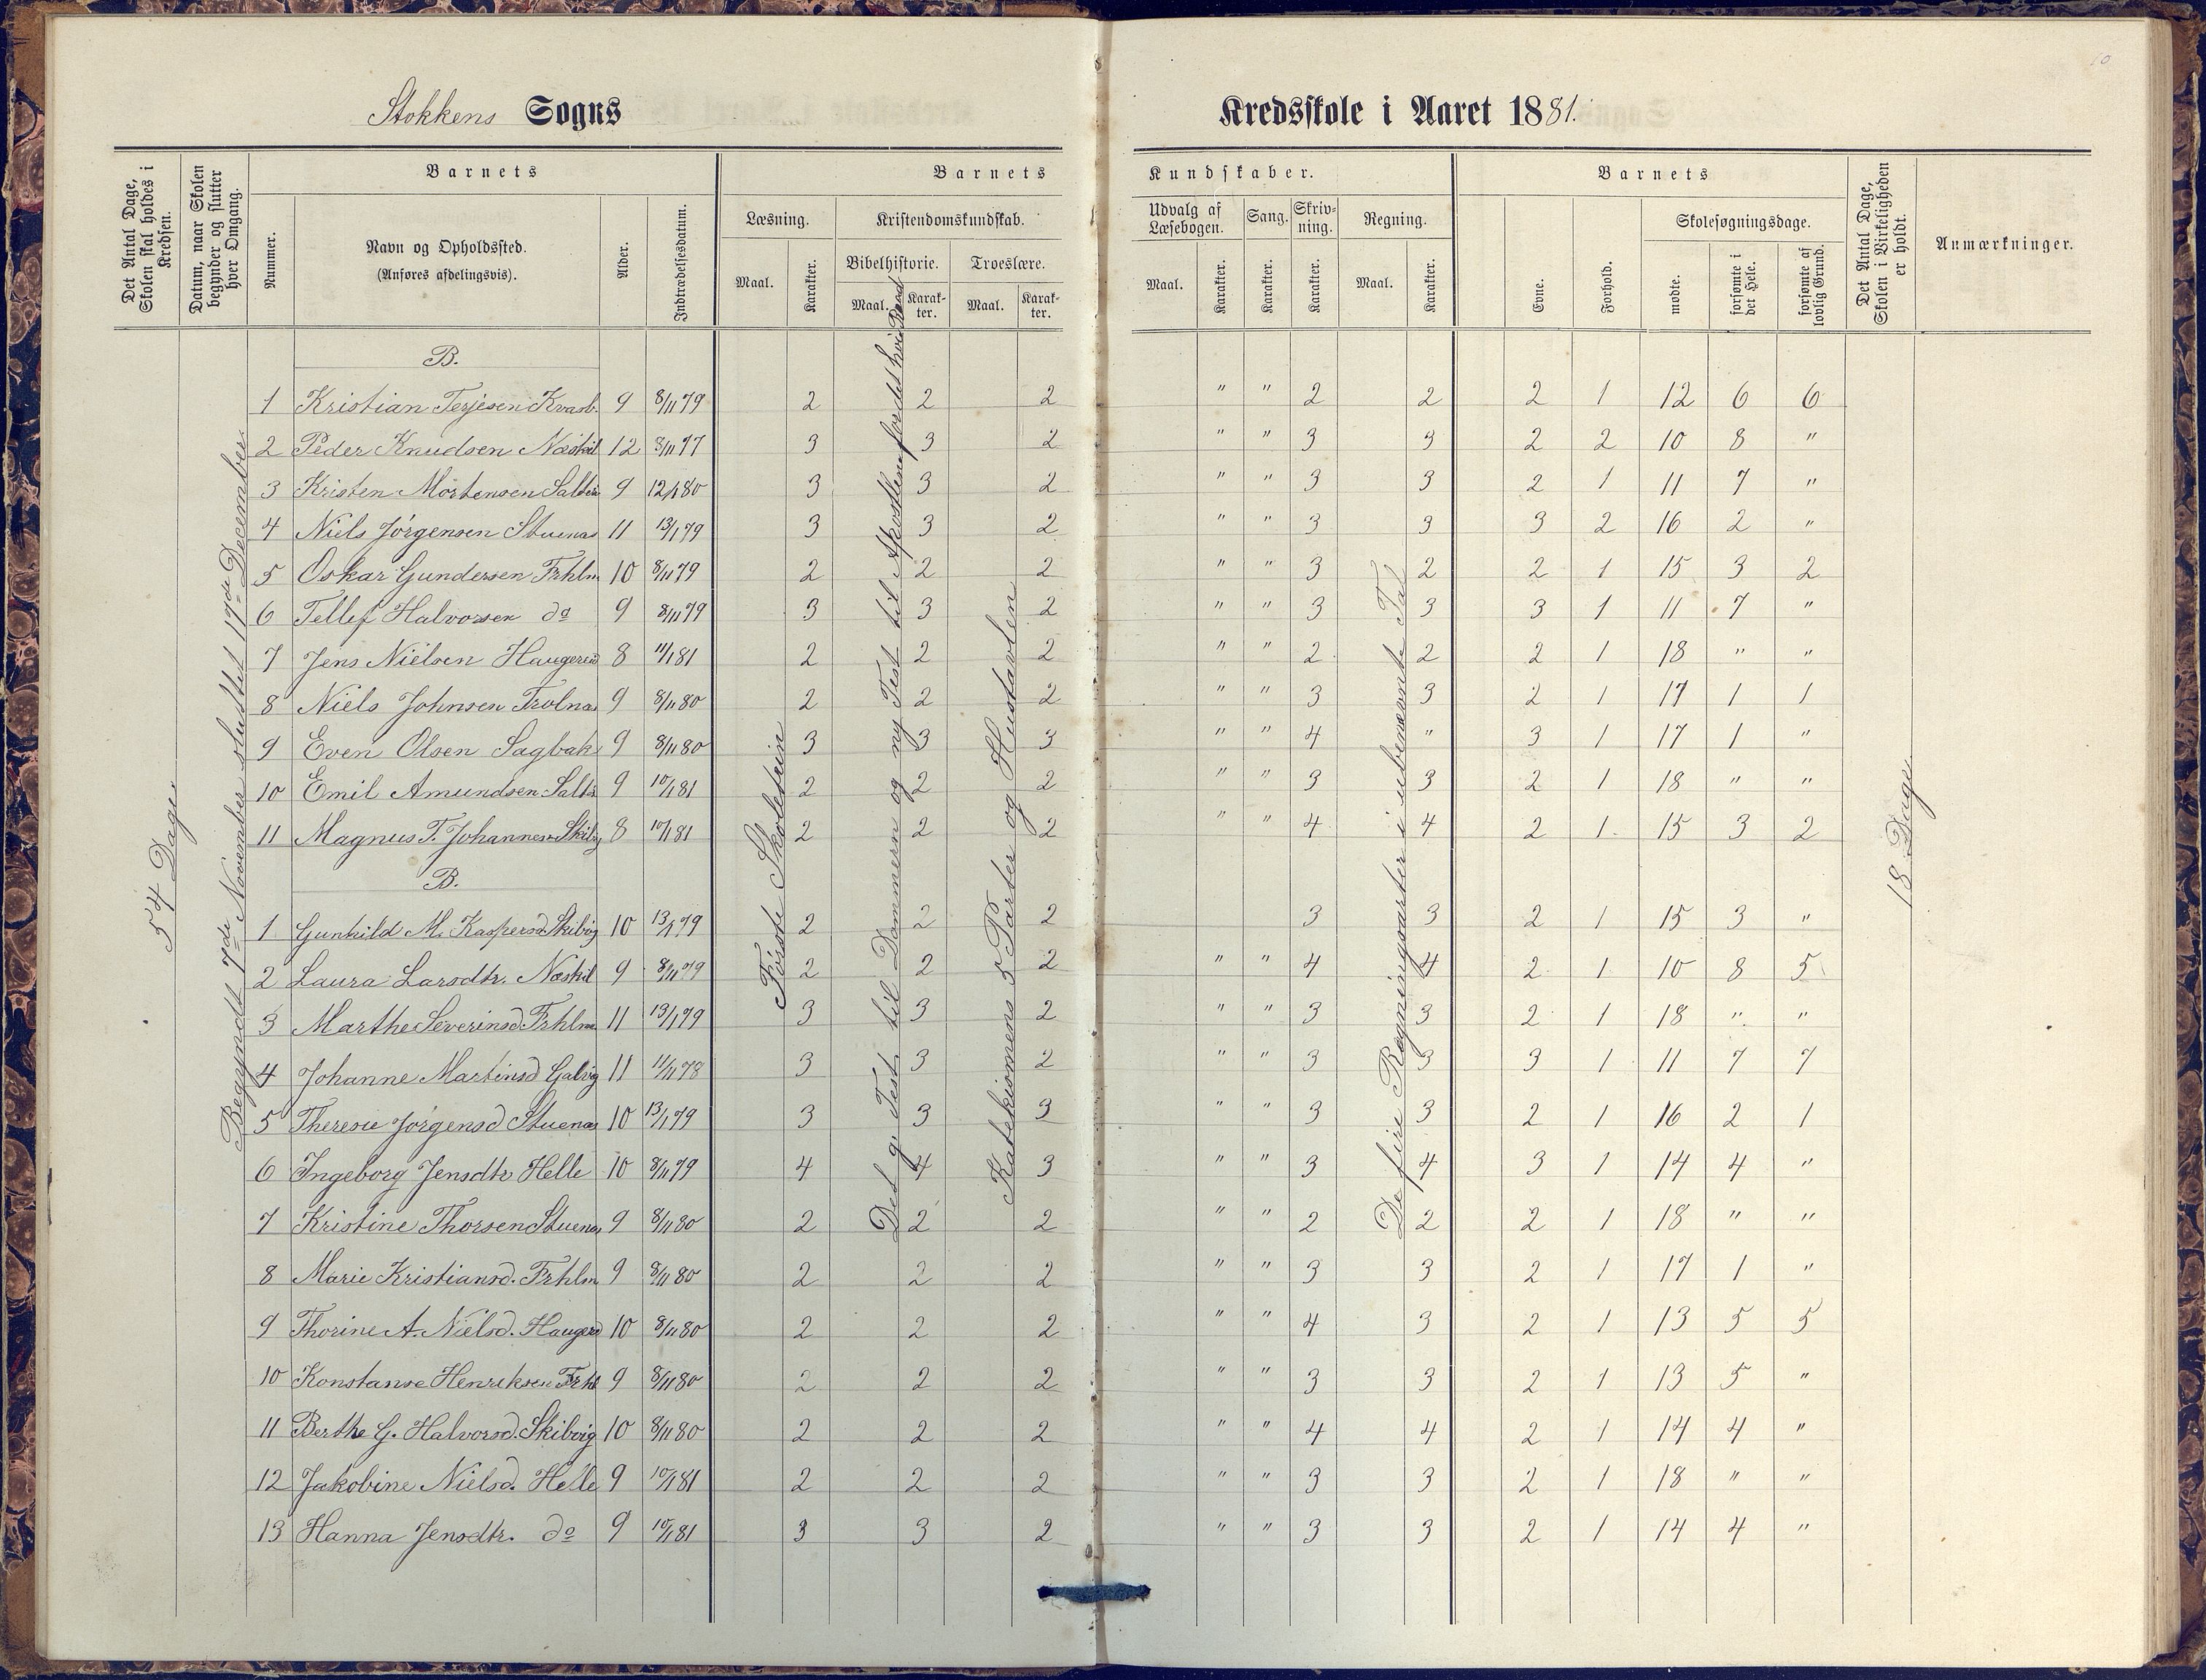 10
Stokkens Sogns
Kredsskole i Aaret 1881.
Det Antal Dage, Skolen skal holdes i Kredsen.
Datum, naar Skolen begynder og slutter hver Omgang.
Barnets
Nummer.
Navn og Opholdssted.
(Anføres afdelingsvis).
Alder.
Indtrædelsesdatum.
Barnets Kundskaber.
Læsning.
Maal.
Karakter.
Kristendomskundskab.
Bibelhistorie.
Maal.
Karakter.
Troeslære.
Maal.
Karakter.
Udvalg af Læsebogen.
Maal.
Karakter.
Sang.
Karakter.
Skrivning.
Karakter.
Regning.
Maal.
Karakter.
Barnets
Evne.
Forhold.
Skolesøgningsdage.
mødte.
forsømte i det Hele.
forsømte af lovlig Grund.
Det Antal Dage, Skolen i Virkeligheden er holdt.
Anmærkninger.
54 Dage.
Begyndt 7de November sluttet 17de December.
Første Skoletrin
Det g. Test. til Dommern og ny Test til Apostlen
Katekismens 5 Parter og Hustavlen
De fire Regningsarter i ubenævnte Tal
18 Dage
B.
1 Kristian Terjesen Kvasb. 9 8/11 79 2 2 2 " " 2 2 2 1 12 6 6
2 Peder Knudsen Næskil 12 8/11 77 3 3 2 " " 3 3 2 2 10 8 "
3 Kristen Mortensen Saltr 9 12/1 80 3 3 2 " " 3 3 2 1 11 7 "
4 Niels Jørgensen Stuenæs 11 13/1 79 3 3 2 " " 3 3 3 2 16 2 "
5 Oskar Gundersen Frhlm 10 8/11 79 2 2 2 " " 3 2 2 1 15 3 2
6 Tellef Halvorsen do 9 8/11 79 3 3 2 " " 3 3 3 1 11 7 "
7 Jens Nielsen Haugerød 8 11/1 81 2 2 2 " " 2 2 2 1 18 " "
8 Niels Johnsen Trolnæs 9 8/11 80 2 2 2 " " 3 3 2 1 17 1 1
9 Even Olsen Sagbak 9 8/11 80 3 3 3 " " 4 " 3 1 17 1 "
10 Emil Amundsen Saltr 9 10/1 81 2 2 2 " " 3 3 2 1 18 " "
11 Magnus T. Johannes. Skibv 8 10/1 81 2 2 2 " " 4 4 2 1 15 3 2
B.
1 Gunhild M. Kaspersd Skibvg 10 13/1 79 2 2 2 3 3 2 1 15 3 "
2 Laura Larsdtr. Næskil 9 8/11 79 2 2 2 " " 4 4 2 1 10 8 5
3 Marthe Severinsd Frhlm 11 13/1 79 3 3 2 " " 3 3 2 1 18 " "
4 Johanne Martinsd Galvig 11 11/11 78 3 3 2 " " 3 3 3 1 11 7 7
5 Theresie Jørgensd Stuenæs 10 13/1 79 3 3 3 " " 3 3 2 1 16 2 1
6 Ingeborg Jensdtr Helle 10 8/11 79 4 4 3 " " 3 4 3 1 14 4 "
7 Kristine Thorsen Stuenæs 9 8/11 80 2 2 2 " " 2 2 2 1 18 " "
8 Marie Kristiansd. Frhlm 9 8/11 80 2 2 2 " " 3 3 2 1 17 1 "
9 Thorine A. Nielsd. Haugerd 10 8/11 80 2 2 2 " " 4 3 2 1 13 5 5
10 Konstanse Henriksen Frhl 9 8/11 80 2 2 2 " " 3 3 2 1 13 5 "
11 Berthe G. Halvorsd. Skibvig 10 8/11 80 2 2 2 " " 4 4 2 1 14 4 "
12 Jakobine Nielsd. Helle 9 10/1 81 2 2 2 " " 3 3 2 1 18 " "
13 Hanna Jensdtr. do 9 10/1 81 3 3 2 " " 3 3 2 1 14 4 "